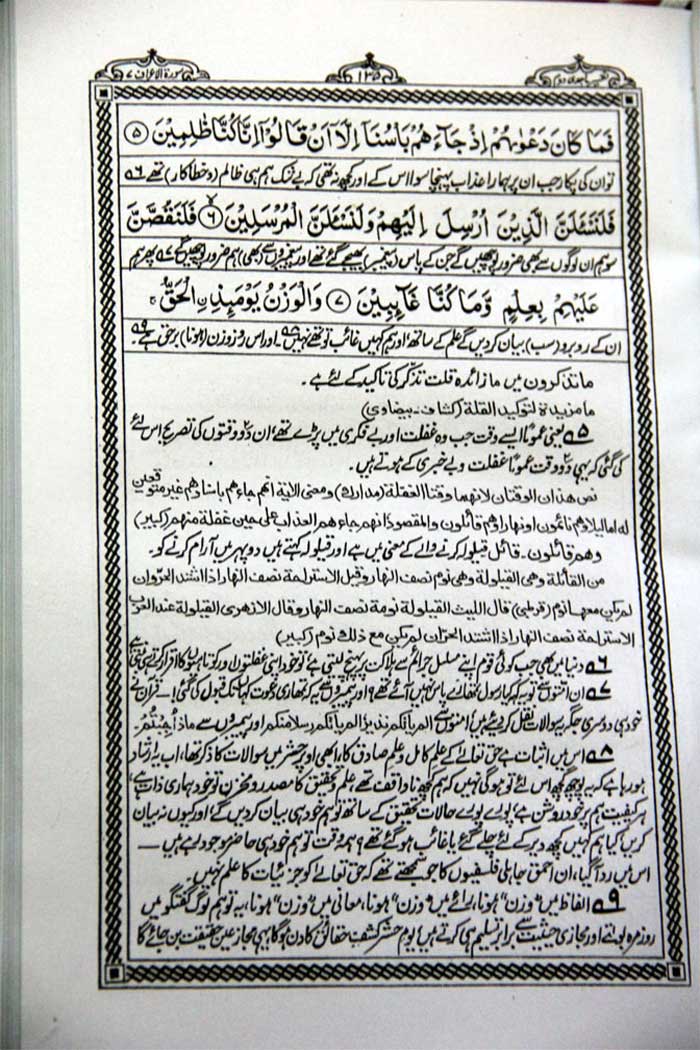 تفسیر ماجدی دوم ۱۳۵ سورۃ الاعراف ۷
فَمَا كَانَ دَعْوٰىهُمْ اِذْ جَآءَهُمْ بَاْسُنَاۤ اِلَّاۤ اَنْ قَالُوْۤا اِنَّا كُنَّا ظٰلِمِيْنَ ۵
تو ان کی پکار جب ان پر ہمارا عذاب پہنچا سوا اس کے اور کچھ نہ تھی کہ بے شک ہم ہی ظالم (و خطاکار) تھے ۵۶
فَلَنَسْئَلَنَّ الَّذِيْنَ اُرْسِلَ اِلَيْهِمْ وَلَنَسْئَلَنَّ الْمُرْسَلِيْنَ ۶ فَلَنَقُصَّنَّ
سو ہم ان لوگوں سے بھی ضرور پوچھیں گے جن کے پاس (پیغمبر) بھیجے گئے تھے اور پیغمبروں سے (بھی) ہم ضرور پوچھیں گے ۵۷ پھر ہم
عَلَيْهِمْ بِعِلْمٍ وَّمَا كُنَّا غَآئِبِيْنَ ۷ وَالْوَزْنُ يَوْمَئِذِنِ الْحَقُّ ج
ان کے روبرو (سب) بیان کردیں گے علم کے ساتھ اور ہم کہیں غائب تو تھے نہیں ۵۸ ۔ اور اس روز وزن (ہونا) برحق ہے ۵۹۔
ما تذکرون میں ما زائدہ قلت تذکر کی تاکید کے لئے ہے۔
ما مزیدۃ لتوکید القلۃ (کشاف۔ بیضاوی)
۵۵ یعنی عمومًا ایسے وقت جب وہ غفلت اور بے فکری میں پڑے تھے، ان دو وقتوں کی تصریح اس لئے
کی گئی کہ یہی دو وقت عمومًا غفلت و بے خبری کے ہوتے ہیں۔
نص ھذان الوقتان لانھما وقتا الغفلۃ (مدارک) ومعنی الآیۃ انھم جاءھم باسنا وھم غیر متوقعین
لہ اما لیلا وھم نائمون او نھارا وھم قائلون والمقصود انھم جاءھم العذاب علی حین غفلۃ منھم (کبیر)
وھم قائلون۔ قائل قیلولہ کرنے والے کے معنی میں ہے اور قیلولہ کہتے ہیں دوپہر میں آرام کرنے کو۔
من القائلۃ وھی القیلولۃ وھی نوم نصف النھار وقیل الاستراحۃ نصف النھار اذا اشتد الحر وان
لم یکن معھا نوم (قرطبی) قال اللیث القیلولۃ نومۃ نصف النھار وقال الازھری القیلولۃ عند العرب
الاستراحۃ نصف النھار اذا اشتد الحر وان لم یکن مع ذلک نوم (کبیر)
۵۶ دنیا میں بھی جب کوئی قوم اپنے مسلسل جرائم سے ہلاکت پر پہنچ لیتی ہے تو خود اپنی غفلتوں اور کوتاہیوں کا اقرار کرتی
۵۷ ان امتوں سے تو یہ کہ کیا رسول تمھارے پاس نہیں آئے تھے؟ اور پیمبروں سے یہ کہ تمھاری دعوت کہاں تک قبول کی گئی! قرآن نے
خود ہی دوسری جگہ یہ سوالات نقل کردیے ہیں امتوں سے الم یاتکم نذیر، الم یاتکم رسل منکم اور پیمبروں سے ماذا اُجِبْتُمْ۔
۵۸ اس میں اثبات ہے حق تعالےٰ کے علم کامل و علم صادق کا، ابھی اوپر حشر میں سوالات کا ذکر تھا، اب یہ ارشاد
ہو رہا ہے کہ یہ پوچھ گچھ اس لئے تو ہوگی نہیں کہ ہم کچھ ناواقف تھے، علم و تحقیق کا مصدر و مخزن تو خود ہماری ذات ہے،
ہر کیفیت ہم پر خود روشن ہے، پورے پورے حالات تحقیق کے ساتھ تو ہم خود ہی بیان کردیں گے اور کیوں نہ بیان
کریں کیا ہم کہیں کچھ دیر کے لئے چلے گئے یا غائب ہوگئے تھے؟ ہمہ وقت تو ہم خود ہی حاضر و موجود رہے ہیں —
اس میں رد آگیا، ان احمق جاہلی فلسفیوں کا جو سمجھتے تھے کہ حق تعالےٰ کو جزئیات کا علم نہیں۔
۵۹ الفاظ میں "وزن" ہونا، رائے میں "وزن" ہونا، معانی میں "وزن" ہونا، یہ تو ہم لوگ گفتگو میں
روزمرہ بولتے اور مجازی حیثیت سے برابر تسلیم ہی کرتے ہیں، یوم حشر کشف حقائق کا دن ہوگا یہی مجاز عین حقیقت بن جائے گا